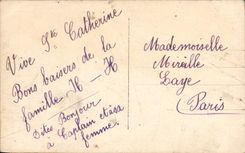 Vive Ste Catherine
Bons baisers de la
famille H - H
Dites Bonjour
à Caplain et à sa
femme.
Mademoiselle
Mireille
Laye
(Paris)